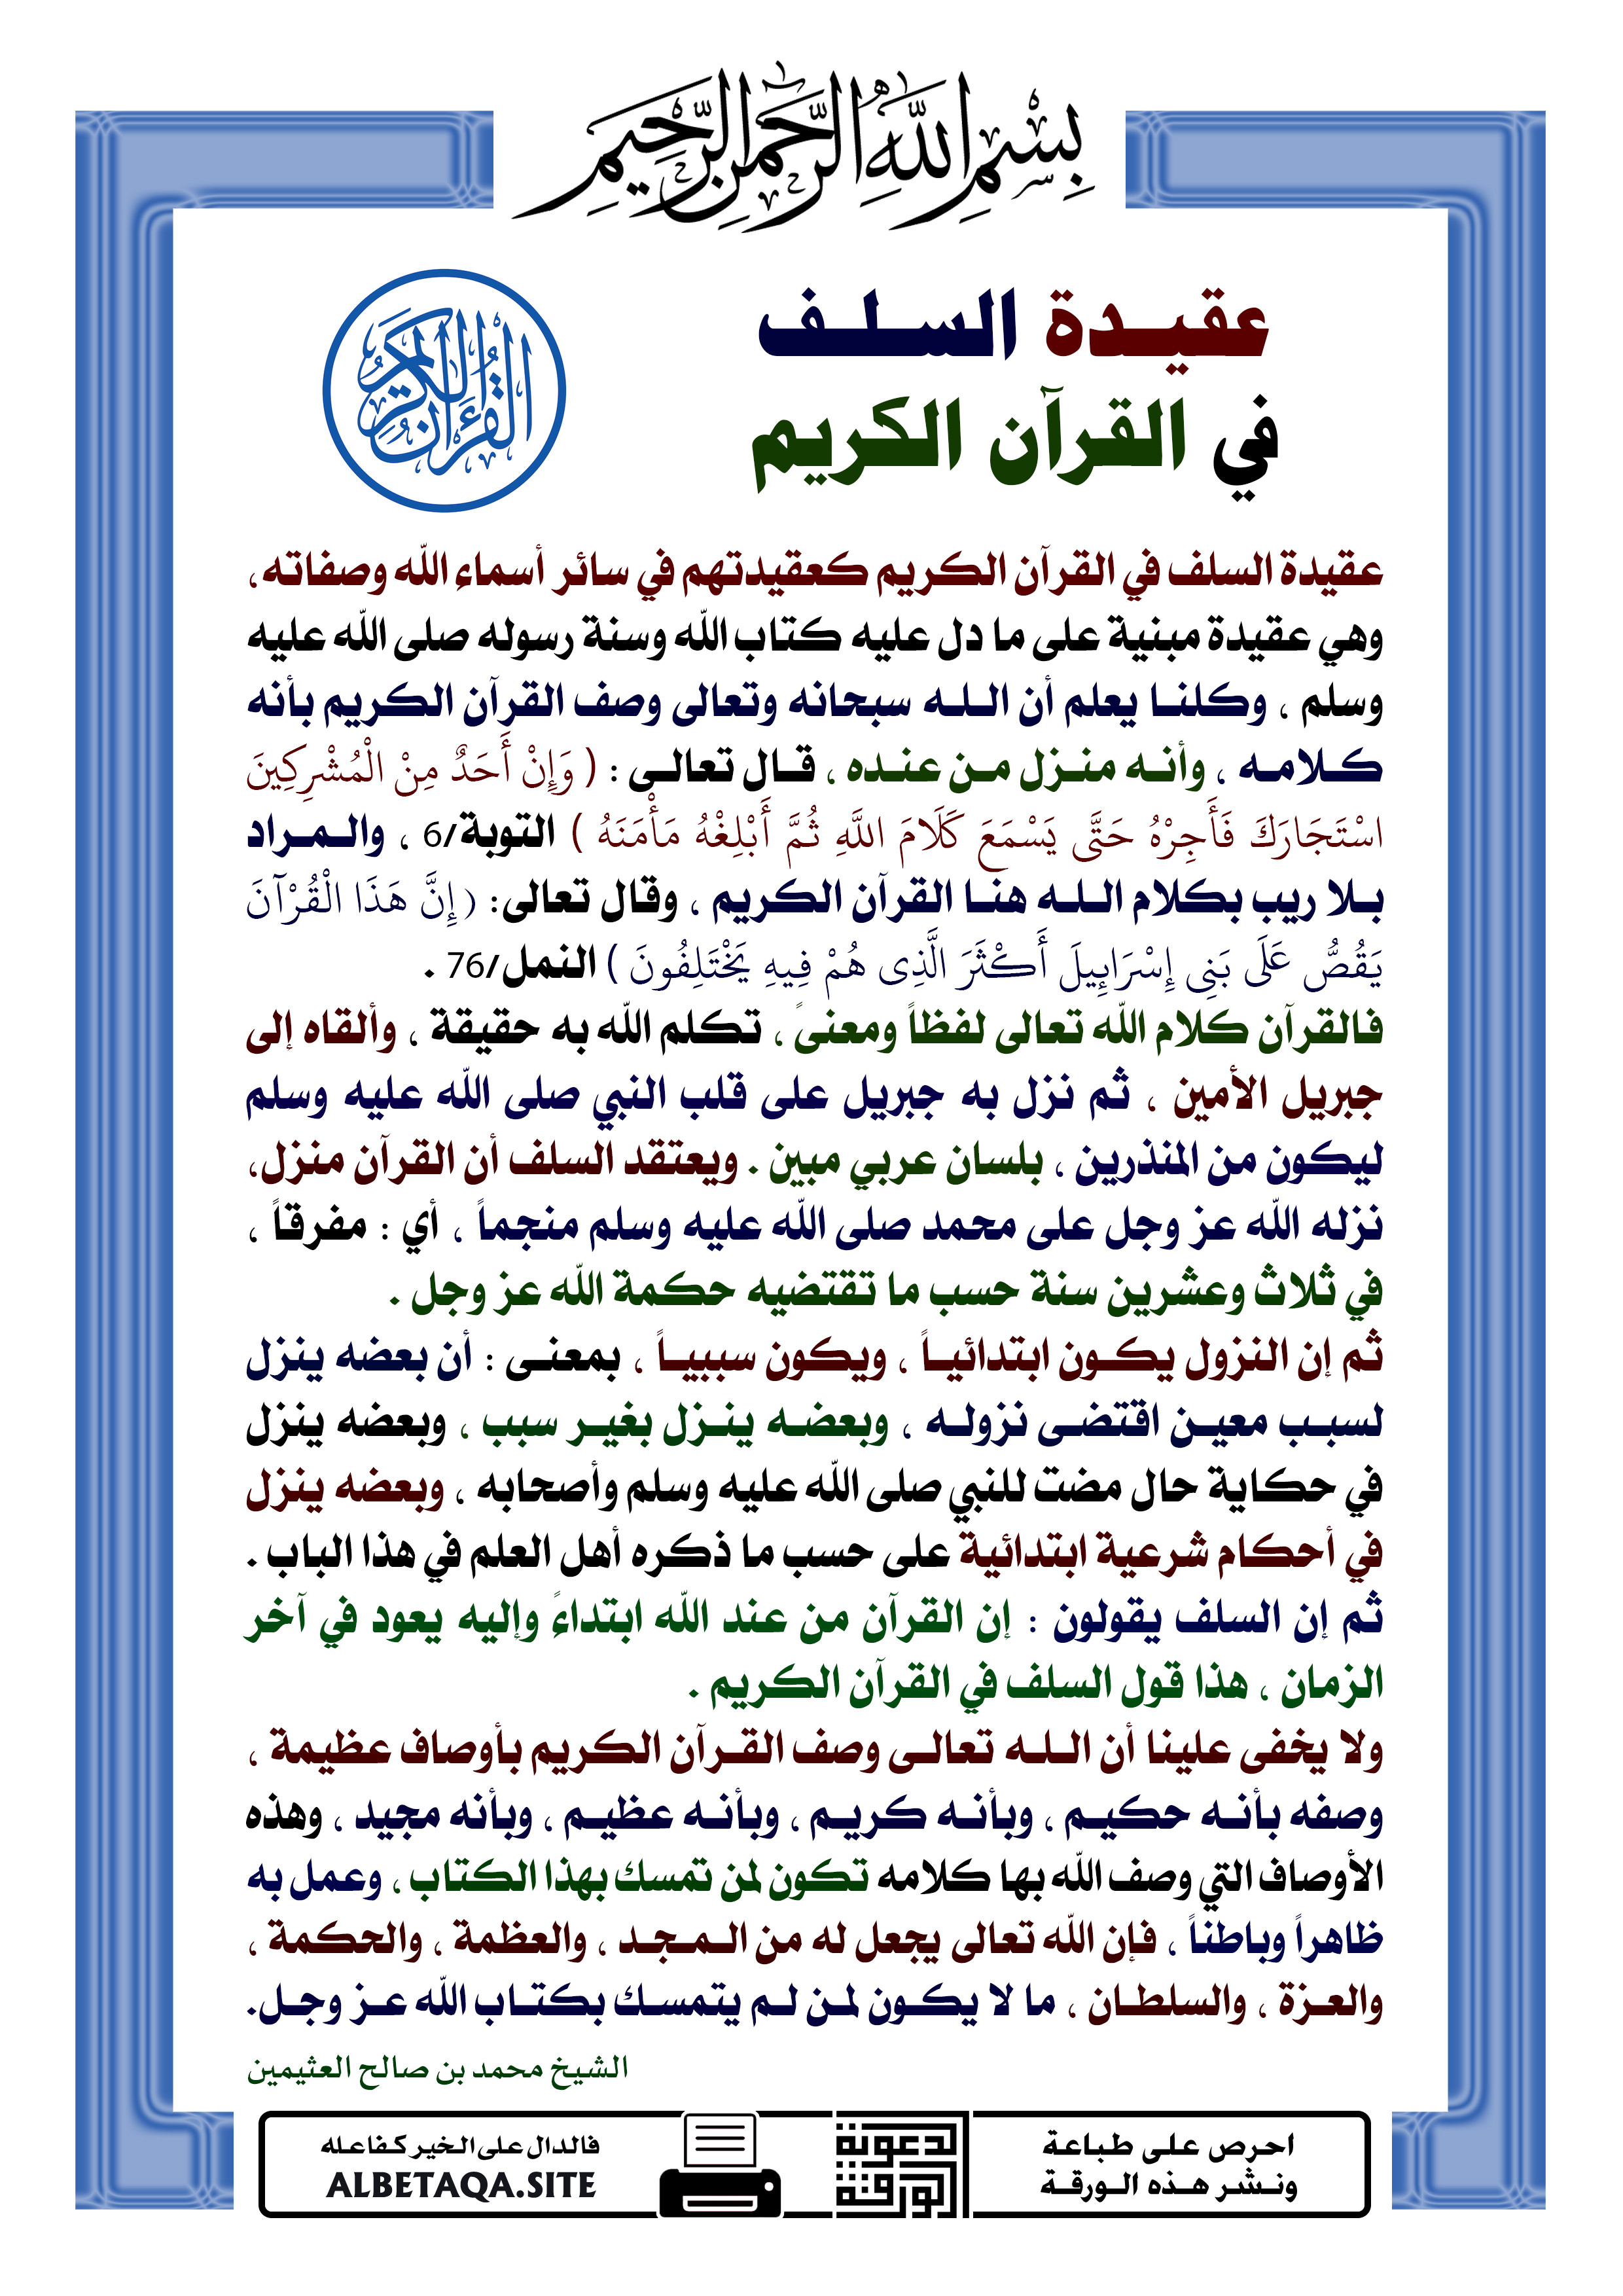 بِسْمِ اللَّهِ الرَّحْمَنِ الرَّحِيمِ
عقيدة السلف
في القرآن الكريم
القرآن الكريم
عقيدة السلف في القرآن الكريم كعقيدتهم في سائر أسماء الله وصفاته،
وهي عقيدة مبنية على ما دل عليه كتاب الله وسنة رسوله صلى الله عليه
وسلم ، وكلنا يعلم أن الله سبحانه وتعالى وصف القرآن الكريم بأنه
كلامه ، وأنه منزل من عنده ، قال تعالى : ( وَإِنْ أَحَدٌ مِنْ الْمُشْرِكِينَ
اسْتَجَارَكَ فَأَجِرْهُ حَتَّى يَسْمَعَ كَلَامَ اللَّهِ ثُمَّ أَبْلِغْهُ مَأْمَنَهُ ) التوبة/6 ، والمراد
بلا ريب بكلام الله هنا القرآن الكريم ، وقال تعالى: ( إِنَّ هَذَا الْقُرْآنَ
يَقُصُّ عَلَى بَنِي إِسْرَائِيلَ أَكْثَرَ الَّذِي هُمْ فِيهِ يَخْتَلِفُونَ ) النمل/76 .
فالقرآن كلام الله تعالى لفظاً ومعنىً ، تكلم الله به حقيقة ، وألقاه إلى
جبريل الأمين ، ثم نزل به جبريل على قلب النبي صلى الله عليه وسلم
ليكون من المنذرين ، بلسان عربي مبين . ويعتقد السلف أن القرآن منزل،
نزله الله عز وجل على محمد صلى الله عليه وسلم منجماً ، أي : مفرقاً ،
في ثلاث وعشرين سنة حسب ما تقتضيه حكمة الله عز وجل .
ثم إن النزول يكون ابتدائياً ، ويكون سببياً ، بمعنى : أن بعضه ينزل
لسبب معين اقتضى نزوله ، وبعضه ينزل بغير سبب ، وبعضه ينزل
في حكاية حال مضت للنبي صلى الله عليه وسلم وأصحابه ، وبعضه ينزل
في أحكام شرعية ابتدائية على حسب ما ذكره أهل العلم في هذا الباب .
ثم إن السلف يقولون : إن القرآن من عند الله ابتداءً وإليه يعود في آخر
الزمان ، هذا قول السلف في القرآن الكريم .
ولا يخفى علينا أن الله تعالى وصف القرآن الكريم بأوصاف عظيمة ،
وصفه بأنه حكيم ، وبأنه كريم ، وبأنه عظيم ، وبأنه مجيد ، وهذه
الأوصاف التي وصف الله بها كلامه تكون لمن تمسك بهذا الكتاب ، وعمل به
ظاهراً وباطناً ، فإن الله تعالى يجعل له من المجد ، والعظمة ، والحكمة ،
والعزة ، والسلطان ، ما لا يكون لمن لم يتمسك بكتاب الله عز وجل.
الشيخ محمد بن صالح العثيمين
احرص على طباعة
ونشر هذه الورقة
الورقة
لدعوية
فالدال على الخير كفاعله
ALBETAQA.SITE